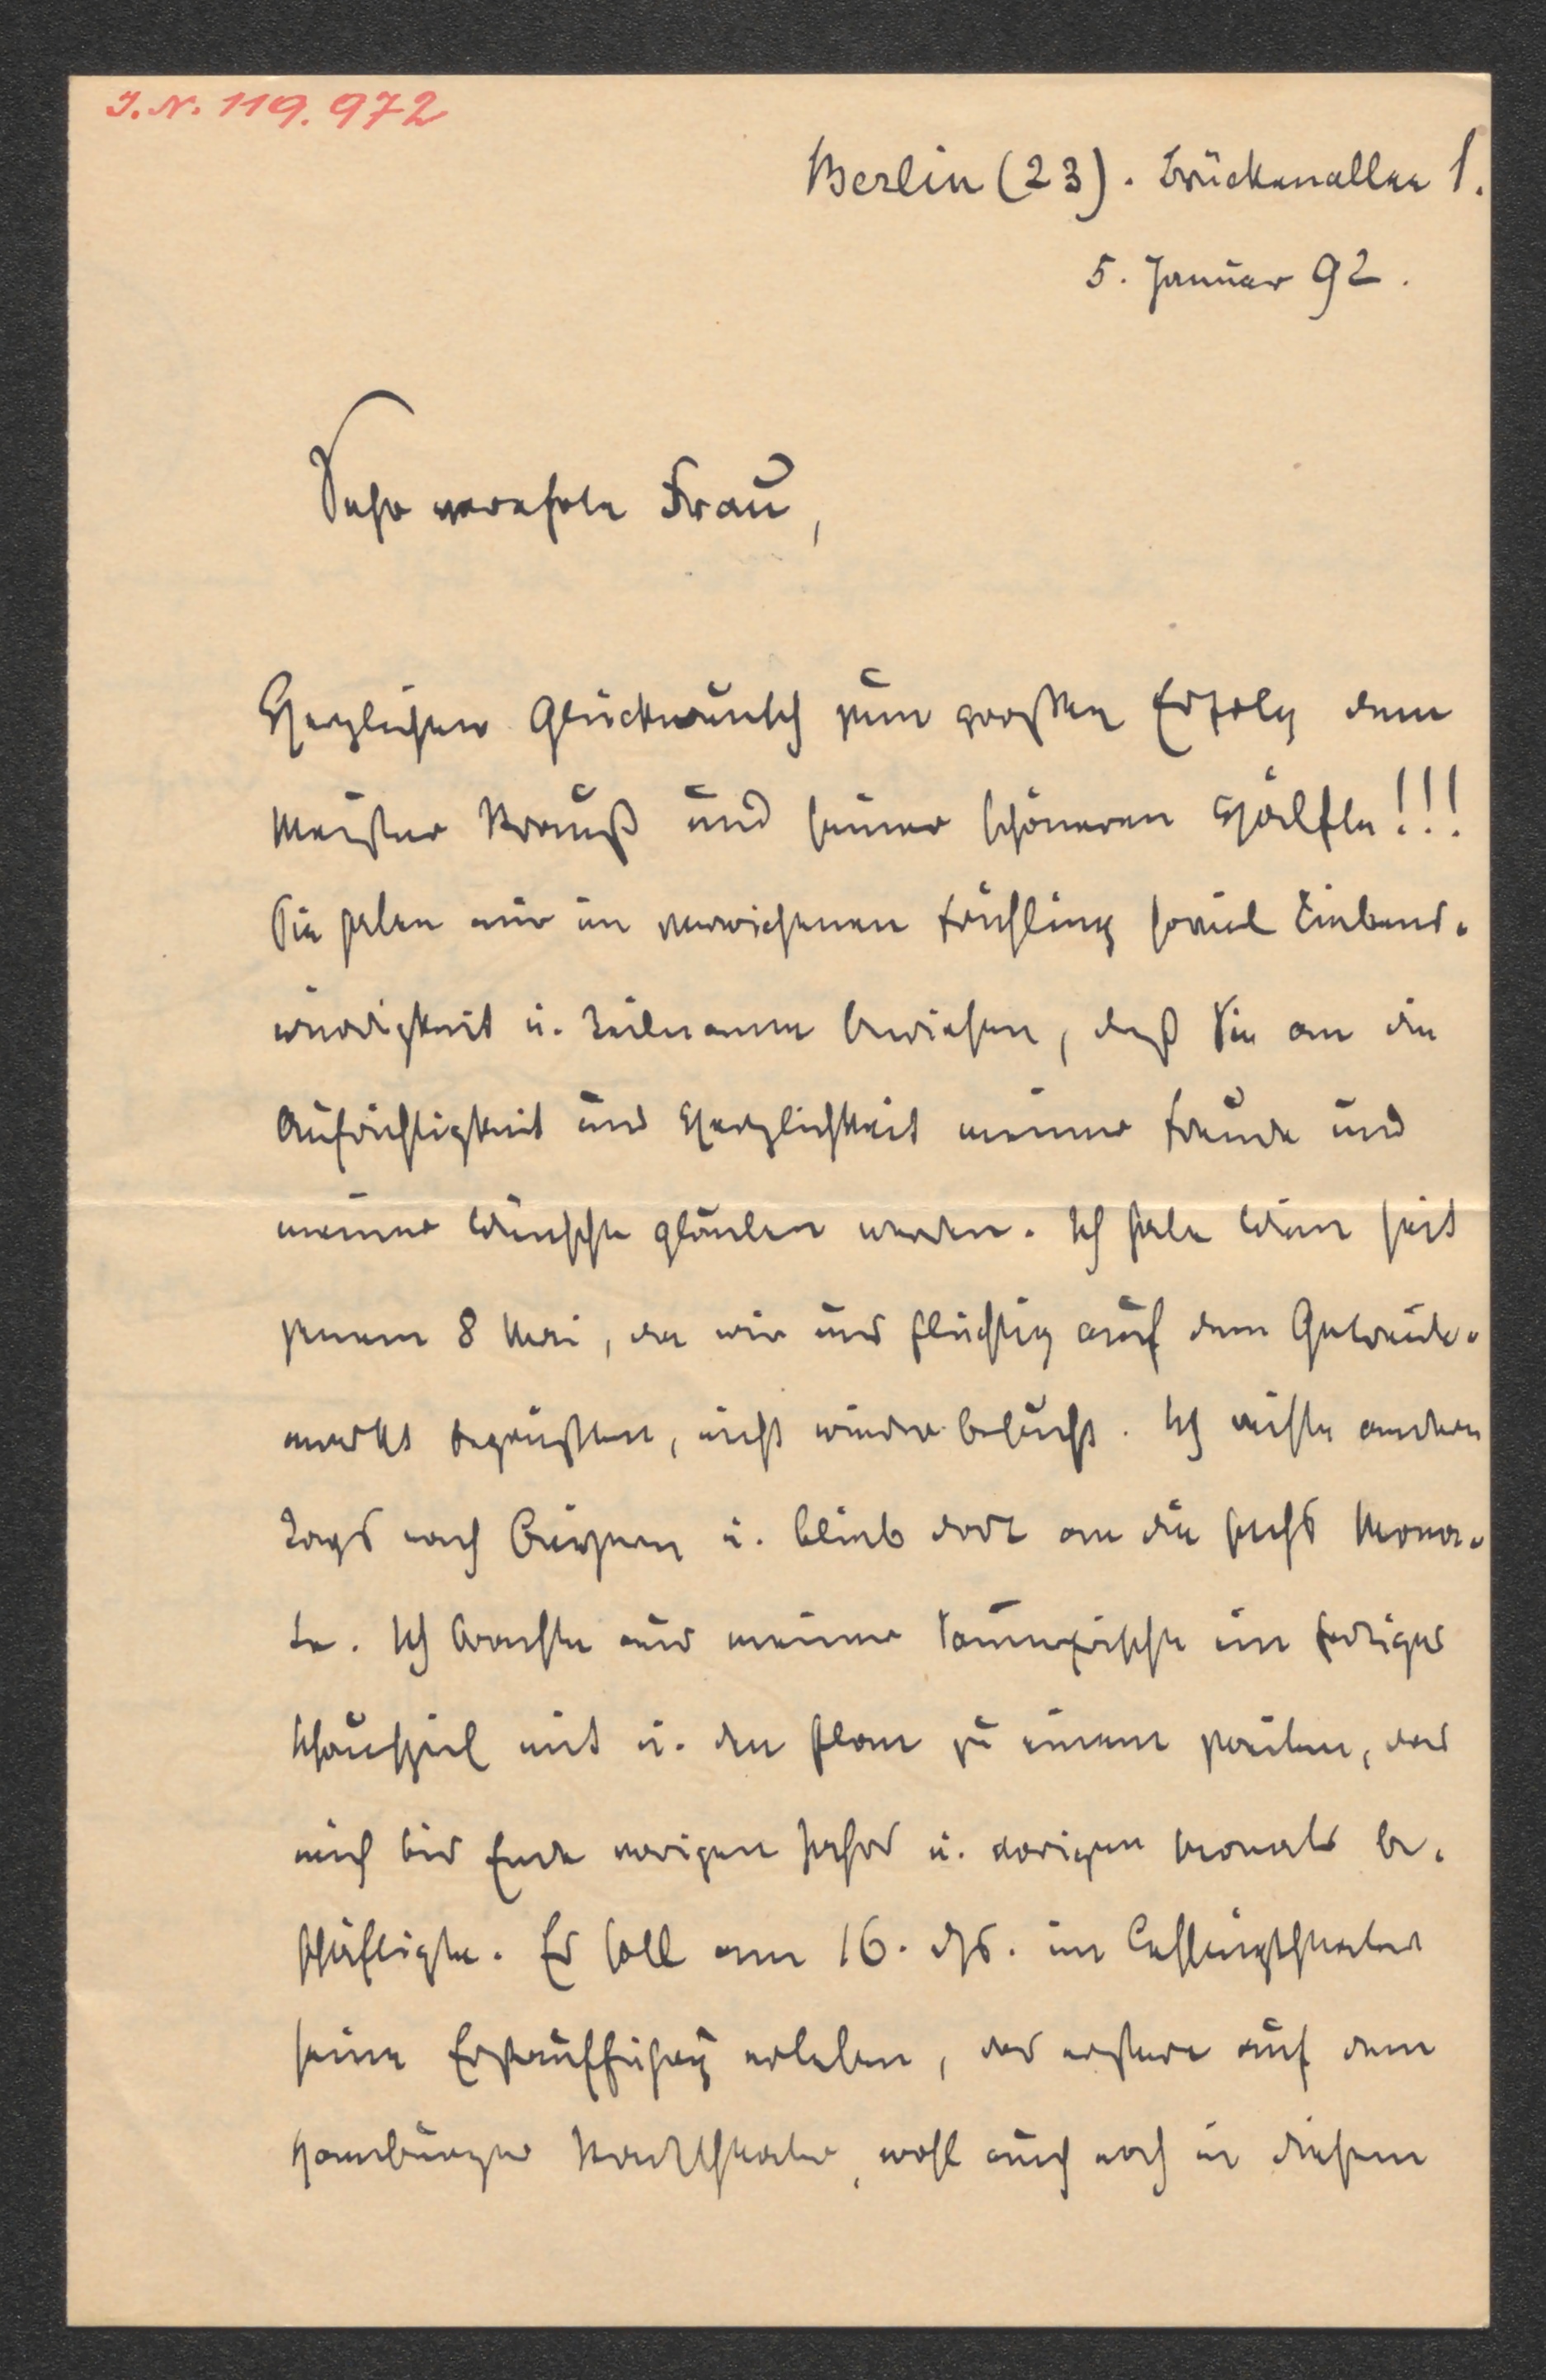 J. N. 119.972
Berlin (23). Brückenallee 1.
5. Januar 92.
Sehr verehrte Frau,
Herzlichen Glückwunsch zum großen Erfolg dem
Meister Strauß und seiner schöneren Hälfte!!!
Sie haben mir im verwichenen Frühling soviel Liebens-
würdigkeit u. Teilname bewiesen, daß Sie an die
Aufrichtigkeit und Herzlichkeit meiner Freude und
meiner Wünsche glauben werden. Ich habe Wien seit
jenem 8 Mai, da wir uns flüchtig auf dem Getreide-
markt begrüßten, nicht wieder besucht. Ich reiste andern
Tags nach und blieb dort an die sechs Mona-
te. Ich brachte aus meiner Sommerfrische ein fertiges
Schauspiel mit u. den Plan zu einem zweiten, das
mich bis Ende vorigen Jahrs u. vorigen Monats be-
schäftigte. Es soll am 16. djs. im Lessingtheater
seine Erstaufführg erleben, das erstere auf dem
Hamburger Stadttheater, wohl auch noch in diesem